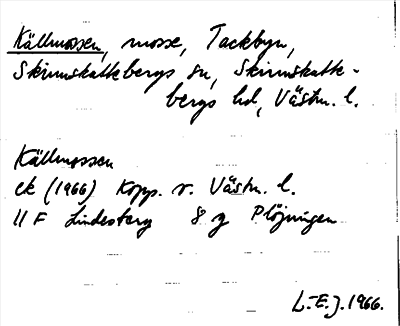 Källmossen, mosse, Tackbyn,
Skinnskattebergs sn, Skinnskatte-
bergs hd, Västm. l.
Källmossen
ek (1966) Kopp. o. Västm. l.
11 F Lindesberg 8 g Plöjningen
L.-E.J. 1966.